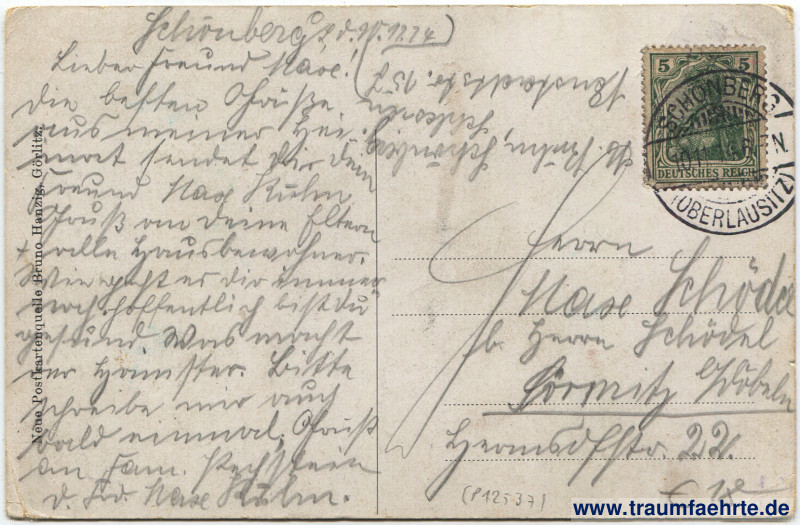 Schönberg, d. 10. 12. 14
Lieber Freund Max!
Die besten Grüße
aus meiner Hei
mat sendet dir dein
Freund Max Kuhn
Gruß an deine Eltern
+ alle Hausbewohner.
Wie geht es dir immer
noch hoffentlich bist du
gesund Was macht
der Hamster. Bitte
schreibe mir auch
bald einmal, Gruß
an Fam.
d. Frd. Max Kuhn.
Neue Postkartenquelle Bruno Hanzig, Görlitz.
5 5
DEUTSCHES REICH
SCHÖNBERG
(OBERLAUSITZ)
Herrn
Max Schödel
b. Herrn Schödel
Sörmitz b/Döbeln
Hermsdfstr. 22.
(P12537)
www.traumfaehrte.de